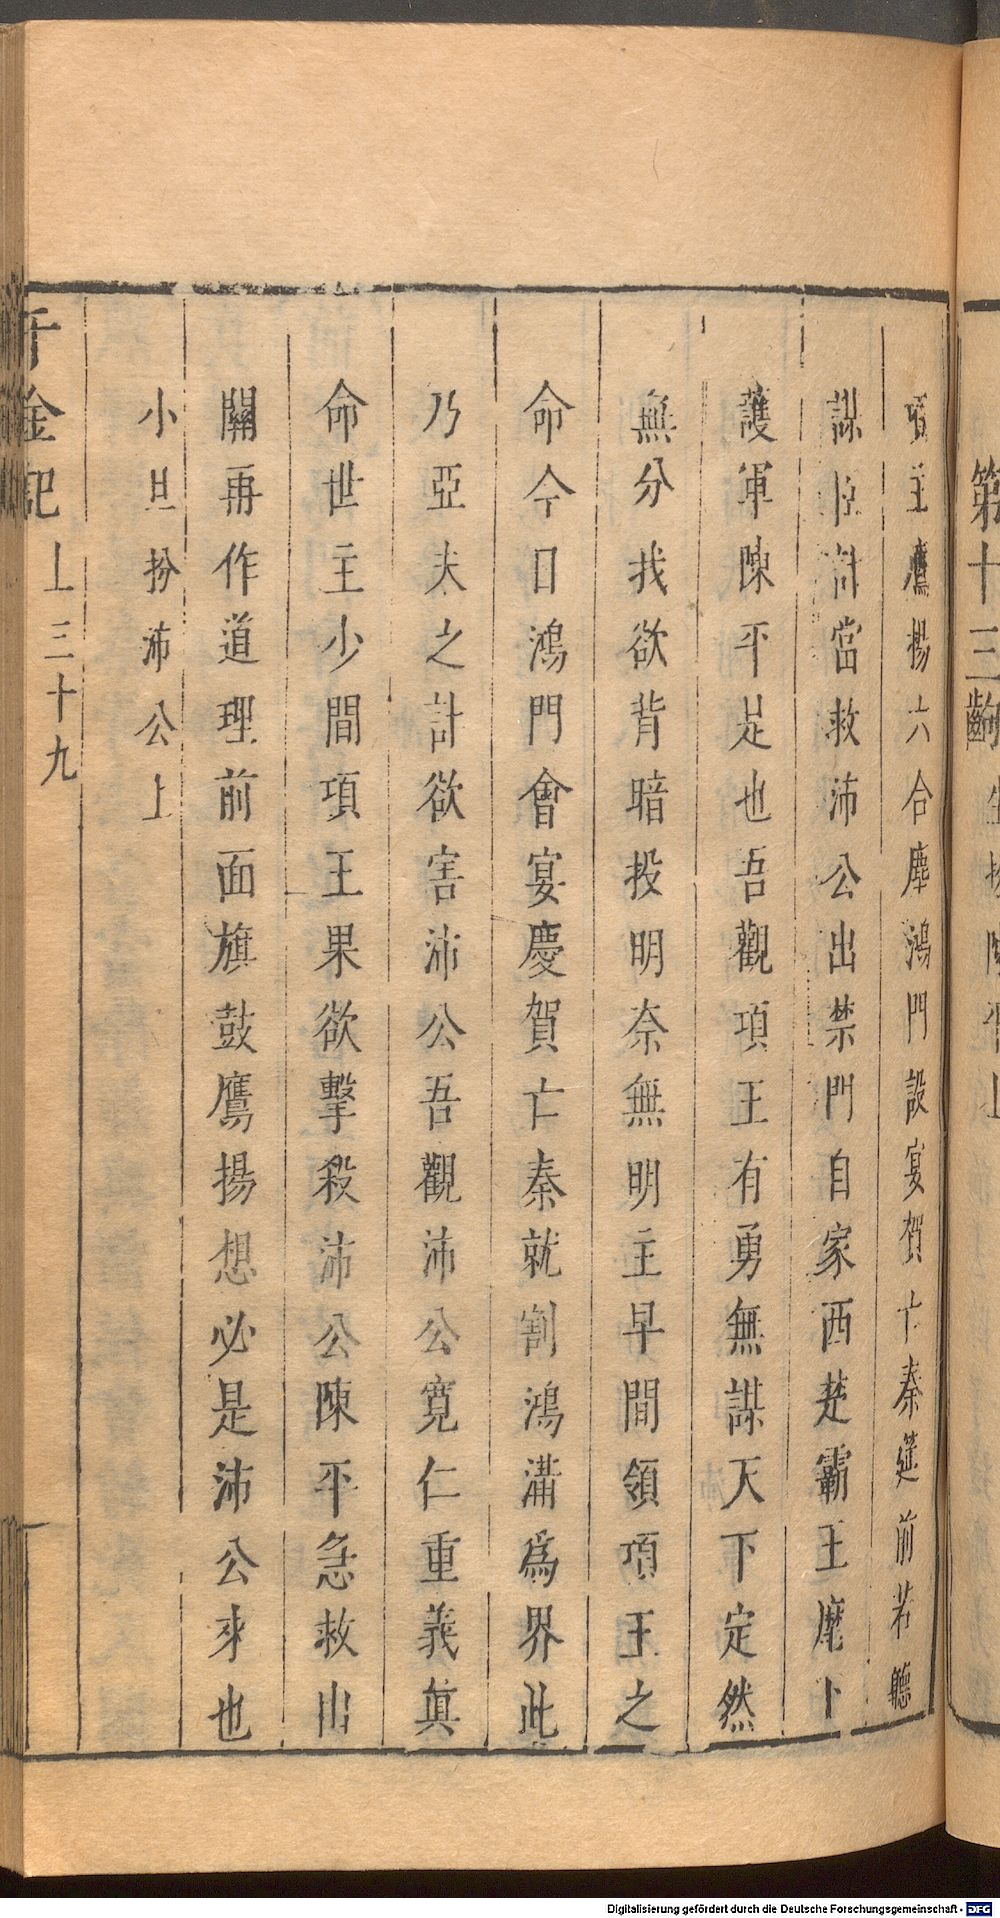 第十三齣
主鷹揚六合塵鴻門設宴賀亡秦筵前若聽
謀臣計當救沛公出禁門自家西楚霸王麾下
護軍陳平是也吾觀項王有勇無謀天下定然
無分我欲背暗投明奈無明主早間領項王之
命今日鴻門會宴慶賀亡秦就割鴻溝為界此
乃亞夫之計欲害沛公吾觀沛公寬仁重義真
命世主少間項王果欲擊殺沛公陳平急救出
關再作道理前面旗鼓鷹揚想必是沛公來也
小旦扮沛公上
千金記 上 三十九
Digitalisierung gefördert durch die Deutsche Forschungsgemeinschaft - DFG